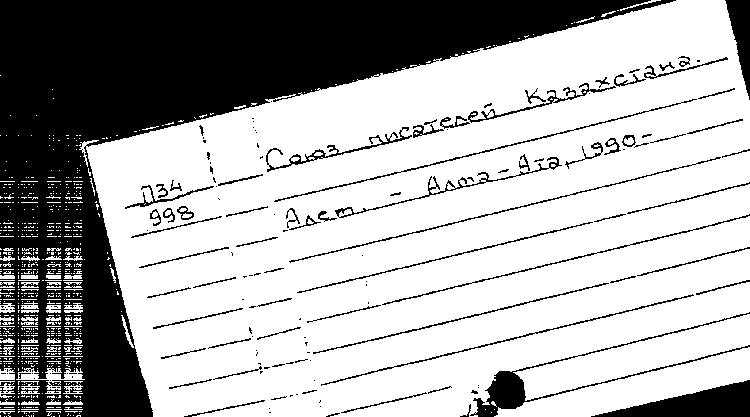 Союз писателей Казахстана.
П34
998
Алст. - Алма-Ата, 1990-